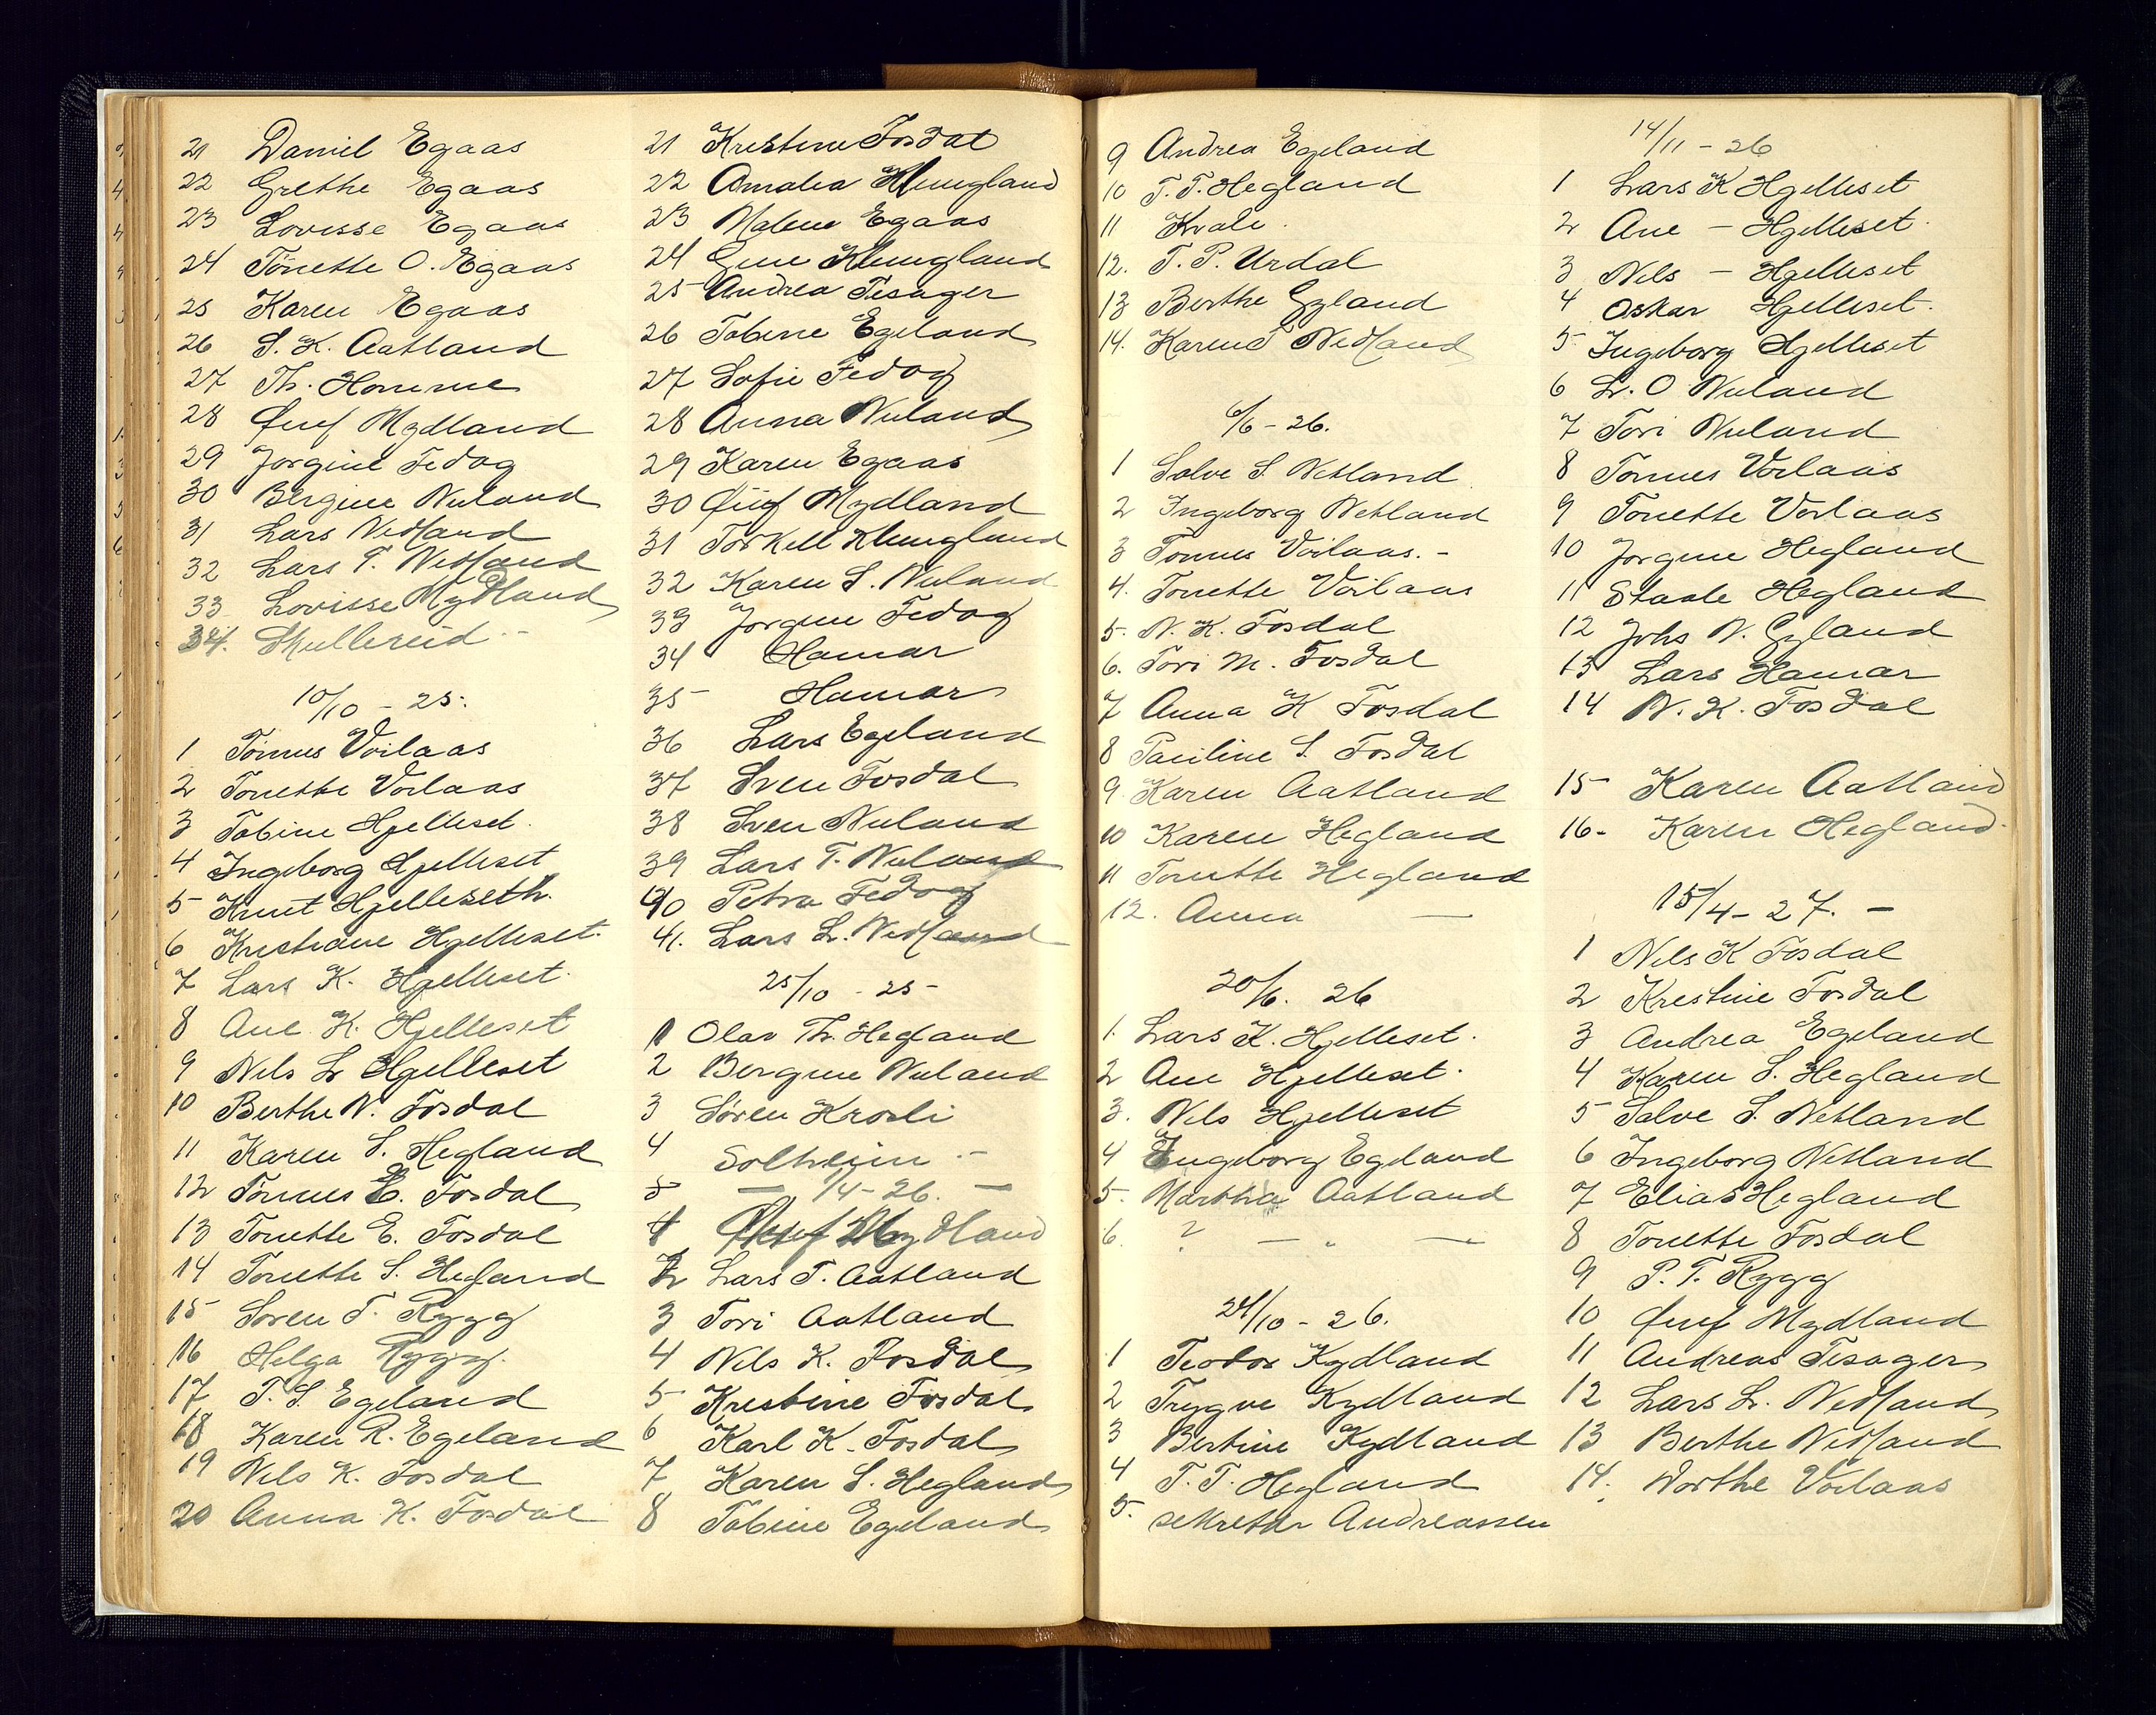 21 Daniel Egaas
22 Grethe Egaas
23 Lovisse Egaas
24 Tönette O. Egaas
25 Karen Egaas
26 S. K. Aatland
27 Th. Homme
28 Mydland
29 Jorgine Fedog
30 Bergine Nuland
31 Lars Nedland
32 Lars T. Nedland
33 Lovisse Mydland
34. Skullereid -
10/10 - 25.
1 Tönnes Voilaas
2 Tonette Voilaas
3 Tobine Hjelleset.
4 Ingeborg Hjelleset
5 Knut Hjelleseth.
6 Kristiane Hjelleset.
7 Lars K. Hjelleset.
8 Ane K. Hjelleset
9 Nils L Hjelleset
10 Berthe N. Fosdal
11 Karen S. Hegland
12 Tönnes E. Fosdal
13 Tonette E. Fosdal
14 Tonette S. Hegland
15 Soren T. Rygg
16 Helga Rygg.
17 T. S. Egeland
18 Karen R. Egeland
19 Nils K. Fosdal
20 Anna K. Fosdal
21 Kristine Fosdal
22 Amalia Klungland
23 Malene Egaas
24 Gine Klungland
25 Andrea Tesager
26 Tobine Egeland
27 Sofie Fedog
28 Anna Nuland
29 Karen Egaas
30 Mydland
31 Torkell Klungland
32 Karen S. Nuland
33 Jorgine Fedog
34 Hamar
35 Hamar
36 Lars Egeland
37 Sven Fosdal
38 Sven Nuland
39 Lars T. Nuland
40 Petra Fedog
41. Lars L. Nedland
25/10 - 25 -
1 Olav Th. Hegland
2 Bergine Nuland
3 Søren Krosli
4 Solheim -
5 — 1/4 - 26. —
1 Mydland
2 Lars T. Aatland
3 Tori Aatland
4 Nils K. Fosdal
5 Kristine Fosdal
6 Karl K. Fosdal
7 Karen S. Hegland
8 Tobine Egeland
9 Andrea Egeland
10 T. T. Hegland
11 Kvale.
12. T. P. Urdal
13 Berthe Gyland
14. Karen T Nedland
6/6 - 26.
1 Salve S. Netland
2 Ingeborg Netland
3 Tönnes Voilaas. -
4. Tonette Voilaas
5. N. K. Fosdal
6. Tori M. Fosdal
7 Anna K Fosdal
8 Pauline S. Fosdal
9. Karen Aatland
10 Karen Hegland
11 Tonette Hegland
12. Anna —
20/6. 26
1. Lars K. Hjelleset.
2 Ane Hjelleset.
3. Nils Hjelleset
4 Ingeborg Egeland
5. Martha Aatland
6. ? — " —
24/10 - 26.
1 Teodor Kydland
2 Trygve Kydland
3 Bertine Kydland
4 T. T. Hegland
5. sekretær Andreassen
14/11 - 26
1 Lars K Hjelleset
2 Ane - Hjelleset.
3 Nils - Hjelleset
4 Oskar Hjelleset.
5 Ingeborg Hjelleset
6 L. O Nuland
7 Tori Nuland
8 Tonnes Voilaas
9 Tonette Voilaas
10 Jorgine Hegland
11 Staale Hegland
12 Johs N. Gyland
13 Lars Hamar
14 N. K. Fosdal
15 Karen Aatland
16- Karen Hegland.
15/4 - 27. -
1 Nils K Fosdal
2 Kristine Fosdal
3 Andrea Egeland
4 Karen S. Hegland
5 Salve S. Netland
6 Ingeborg Netland
7 Elias Hegland
8 Tonette Fosdal
9 P. T. Rygg
10 Mydland
11 Andreas Tesager
12 Lars L. Nedland
13 Berthe Nedland
14. Dorthe Voilaas